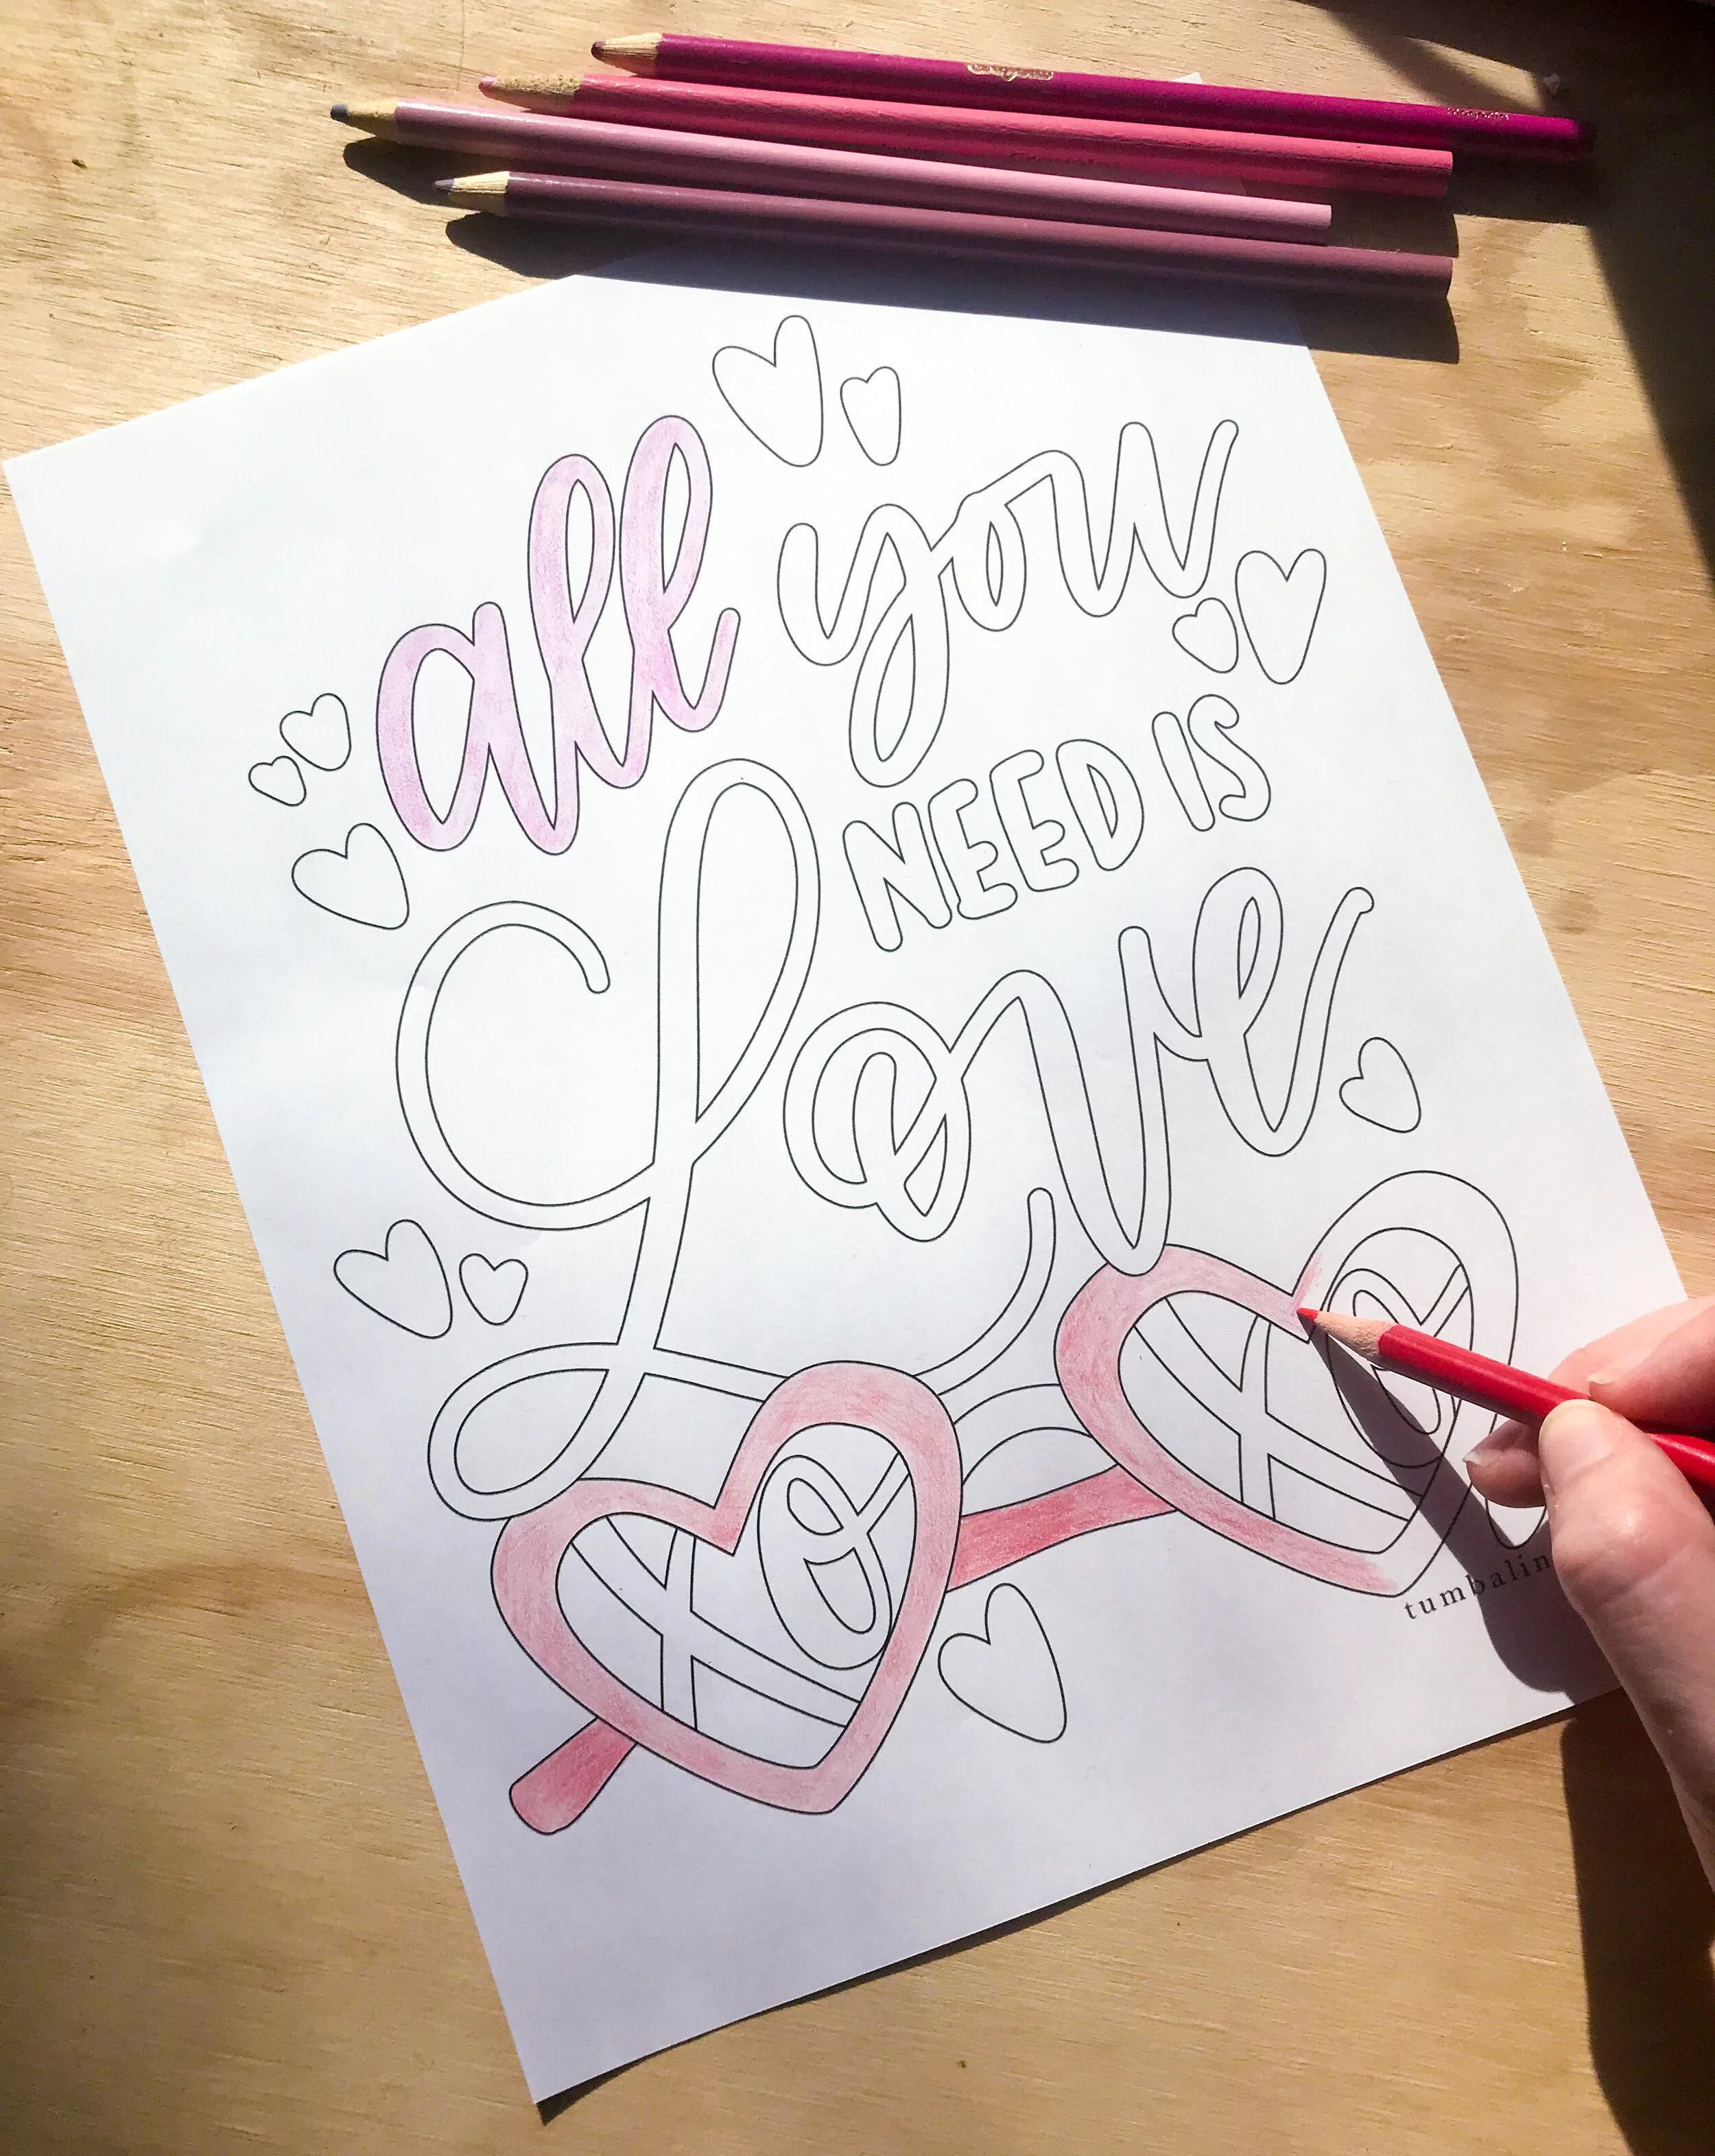 Crayola
all you
NEED IS
Love
xo xo
tumbalin